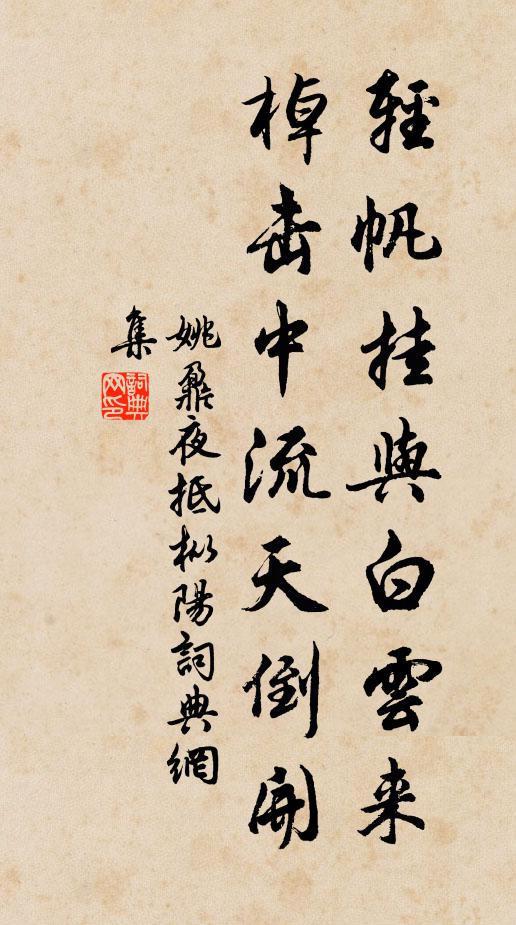 輕帆挂與白雲来
棹击中流天倒開
姚鼐夜抵枞陽詞典網
集
詞典網印